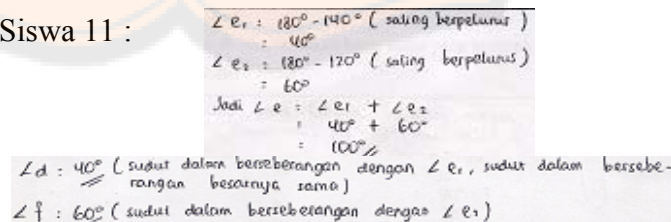 Siswa 11 :
∠e₁ : 180° - 140° ( saling berpelurus )
: 40°
∠e₂ : 180° - 120° ( saling berpelurus )
: 60°
Jadi ∠e : ∠e₁ + ∠e₂
: 40° + 60°
: 100°
∠d : 40° ( sudut dalam berseberangan dengan ∠e₁, sudut dalam bersebe-
rangan besarnya sama )
∠f : 60° ( sudut dalam berseberangan dengan ∠e₂ )